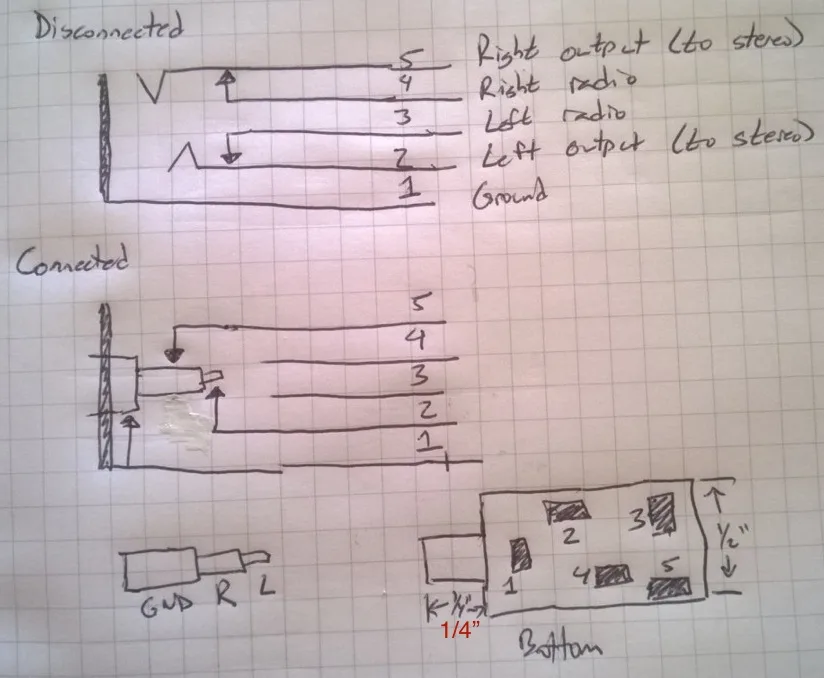 Disconnected
5 Right output (to stereo)
4 Right radio
3 Left radio
2 Left output (to stereo)
1 Ground
Connected
5
4
3
2
1
GND R L
1 2 3 4 5
1/2"
1/4"
1/4"
Bottom